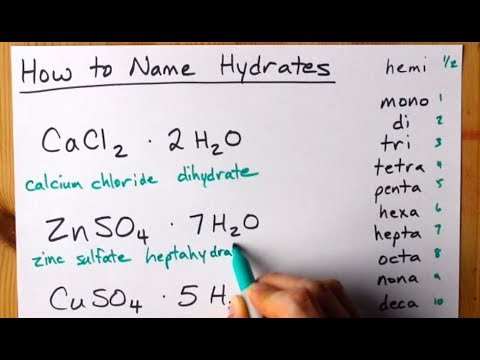 How to Name Hydrates
CaCl₂ · 2 H₂O
calcium chloride dihydrate
ZnSO₄ · 7 H₂O
zinc sulfate heptahydra
CuSO₄ · 5 H₂
hemi 1/2
mono 1
di 2
tri 3
tetra 4
penta 5
hexa 6
hepta 7
octa 8
nona 9
deca 10